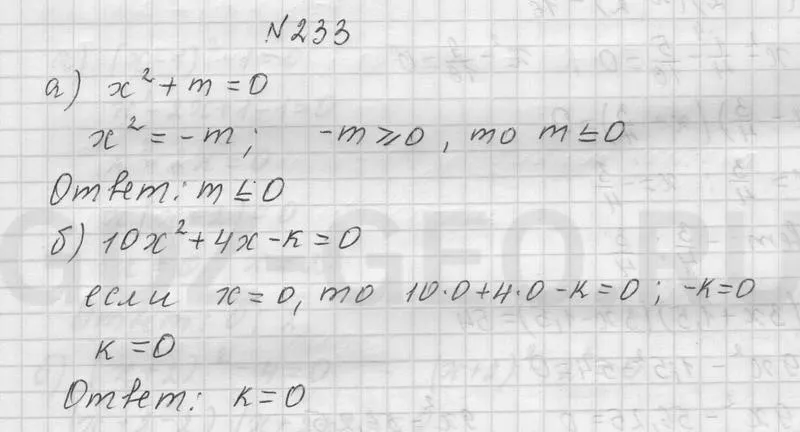 №233
а) x² + m = 0
x² = -m; -m ⩾ 0, то m ≤ 0
Ответ: m ≤ 0
б) 10x² + 4x - к = 0
если x = 0, то 10·0 + 4·0 - к = 0; -к = 0
к = 0
Ответ: к = 0